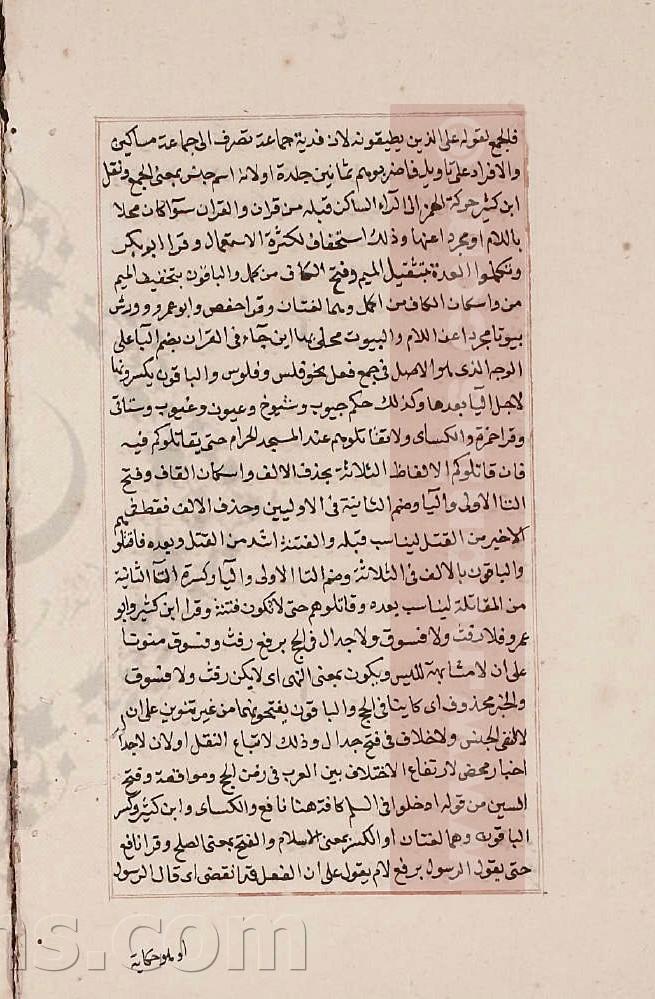 فالجمع لقوله على الذين يطيقونه لان فدية جماعة تصرف الى جماعة مساكين
والافراد على تاويل فاضربوهم ثمانين جلدة اولانه اسم جنس بمعنى الجمع ونقل
ابن كثير حركة الهمز الى الراء الساكن قبله من قران والقران سوآ كان محلا
باللام او مجردا عنها وذلك استخفاف لكثرة الاستعمال وقرا ابو بكر
ولتكملوا العدة بتثقيل الميم وفتح الكاف من كمل والباقون بتخفيف الميم
من واسكان الكاف من اكمل وهما لغتان وقرا حفص وابو عمرو وورش
بيوتا مجردا عن اللام والبيوت محلى بها اين جآء فى القران بضم البآ على
الوجه الذى هو الاصل فى جمع فعل نحو فلس وفلوس والباقون يكسرونها
لاجل اليآ بعدها وكذلك حكم جيوب وشيوخ وعيون وغيوب وستاتى
وقرا حمزة والكساى ولا تقاتلوهم عند المسجد الحرام حتى يقاتلوكم فيه
فان قاتلوكم الالفاظ الثلاثة بحذف الالف واسكان القاف وفتح
التا الاولى واليآ وضم الثانية فى الاوليين وحذف الالف فقط فى
الاخير من القتل ليناسب قبله والفتنة اشد من القتل وبعده فاقتلوهم
والباقون بالالف فى الثلاثة وضم التا الاولى واليآ وكسرة التآ الثانية
من المقاتلة ليناسب بعده وقاتلوهم حتى لا تكون فتنة وقرا ابن كثير وابو
عمرو فلا رفث ولا فسوق ولا جدال فى الحج برفع رفث وفسوق منونا
على ان لا مشابهة لليس ويكون بمعنى النهى اى لا يكن رفث ولا فسوق
والخبر محذوف اى كاينا فى الحج والباقون يفتحونهما من غير تنوين على ان
لا لنفى الجنس ولا خلاف فى فتح جدال وذلك لاتباع النقل اولان لا جدال
اخبار محض لارتفاع الاختلاف بين العرب فى زمن الحج ومواقعة وفتح
السين من قوله ادخلوا فى السلم كافة هنا نافع والكساى وابن كثير وكسر
الباقون وهما لغتان او الكسر بمعنى الاسلام والفتح بمعنى الصلح وقرا نافع
حتى يقول الرسول برفع لام يقول على ان الفعل قد انقضى اى قال الرسول
او هو حكاية
ms.com